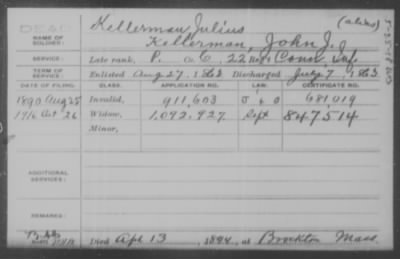 DEAD
Kellerman, Julius (alias)
NAME OF SOLDIER: Kellerman, John J.
SERVICE: Late rank, P. Co. C, 22 Reg't Conn. Inf.
TERM OF SERVICE: Enlisted Aug 27, 1862 Discharged July 7, 1863.
DATE OF FILING. CLASS. APPLICATION NO. LAW. CERTIFICATE NO.
1890 Aug 25 Invalid, 911,603 J & O 681,019
1916 Oct 26 Widow, 1,092,927 Sept 847514
Minor,
ADDITIONAL SERVICES:
REMARKS:
Died Apl 13, 1894, at Brockton Mass.